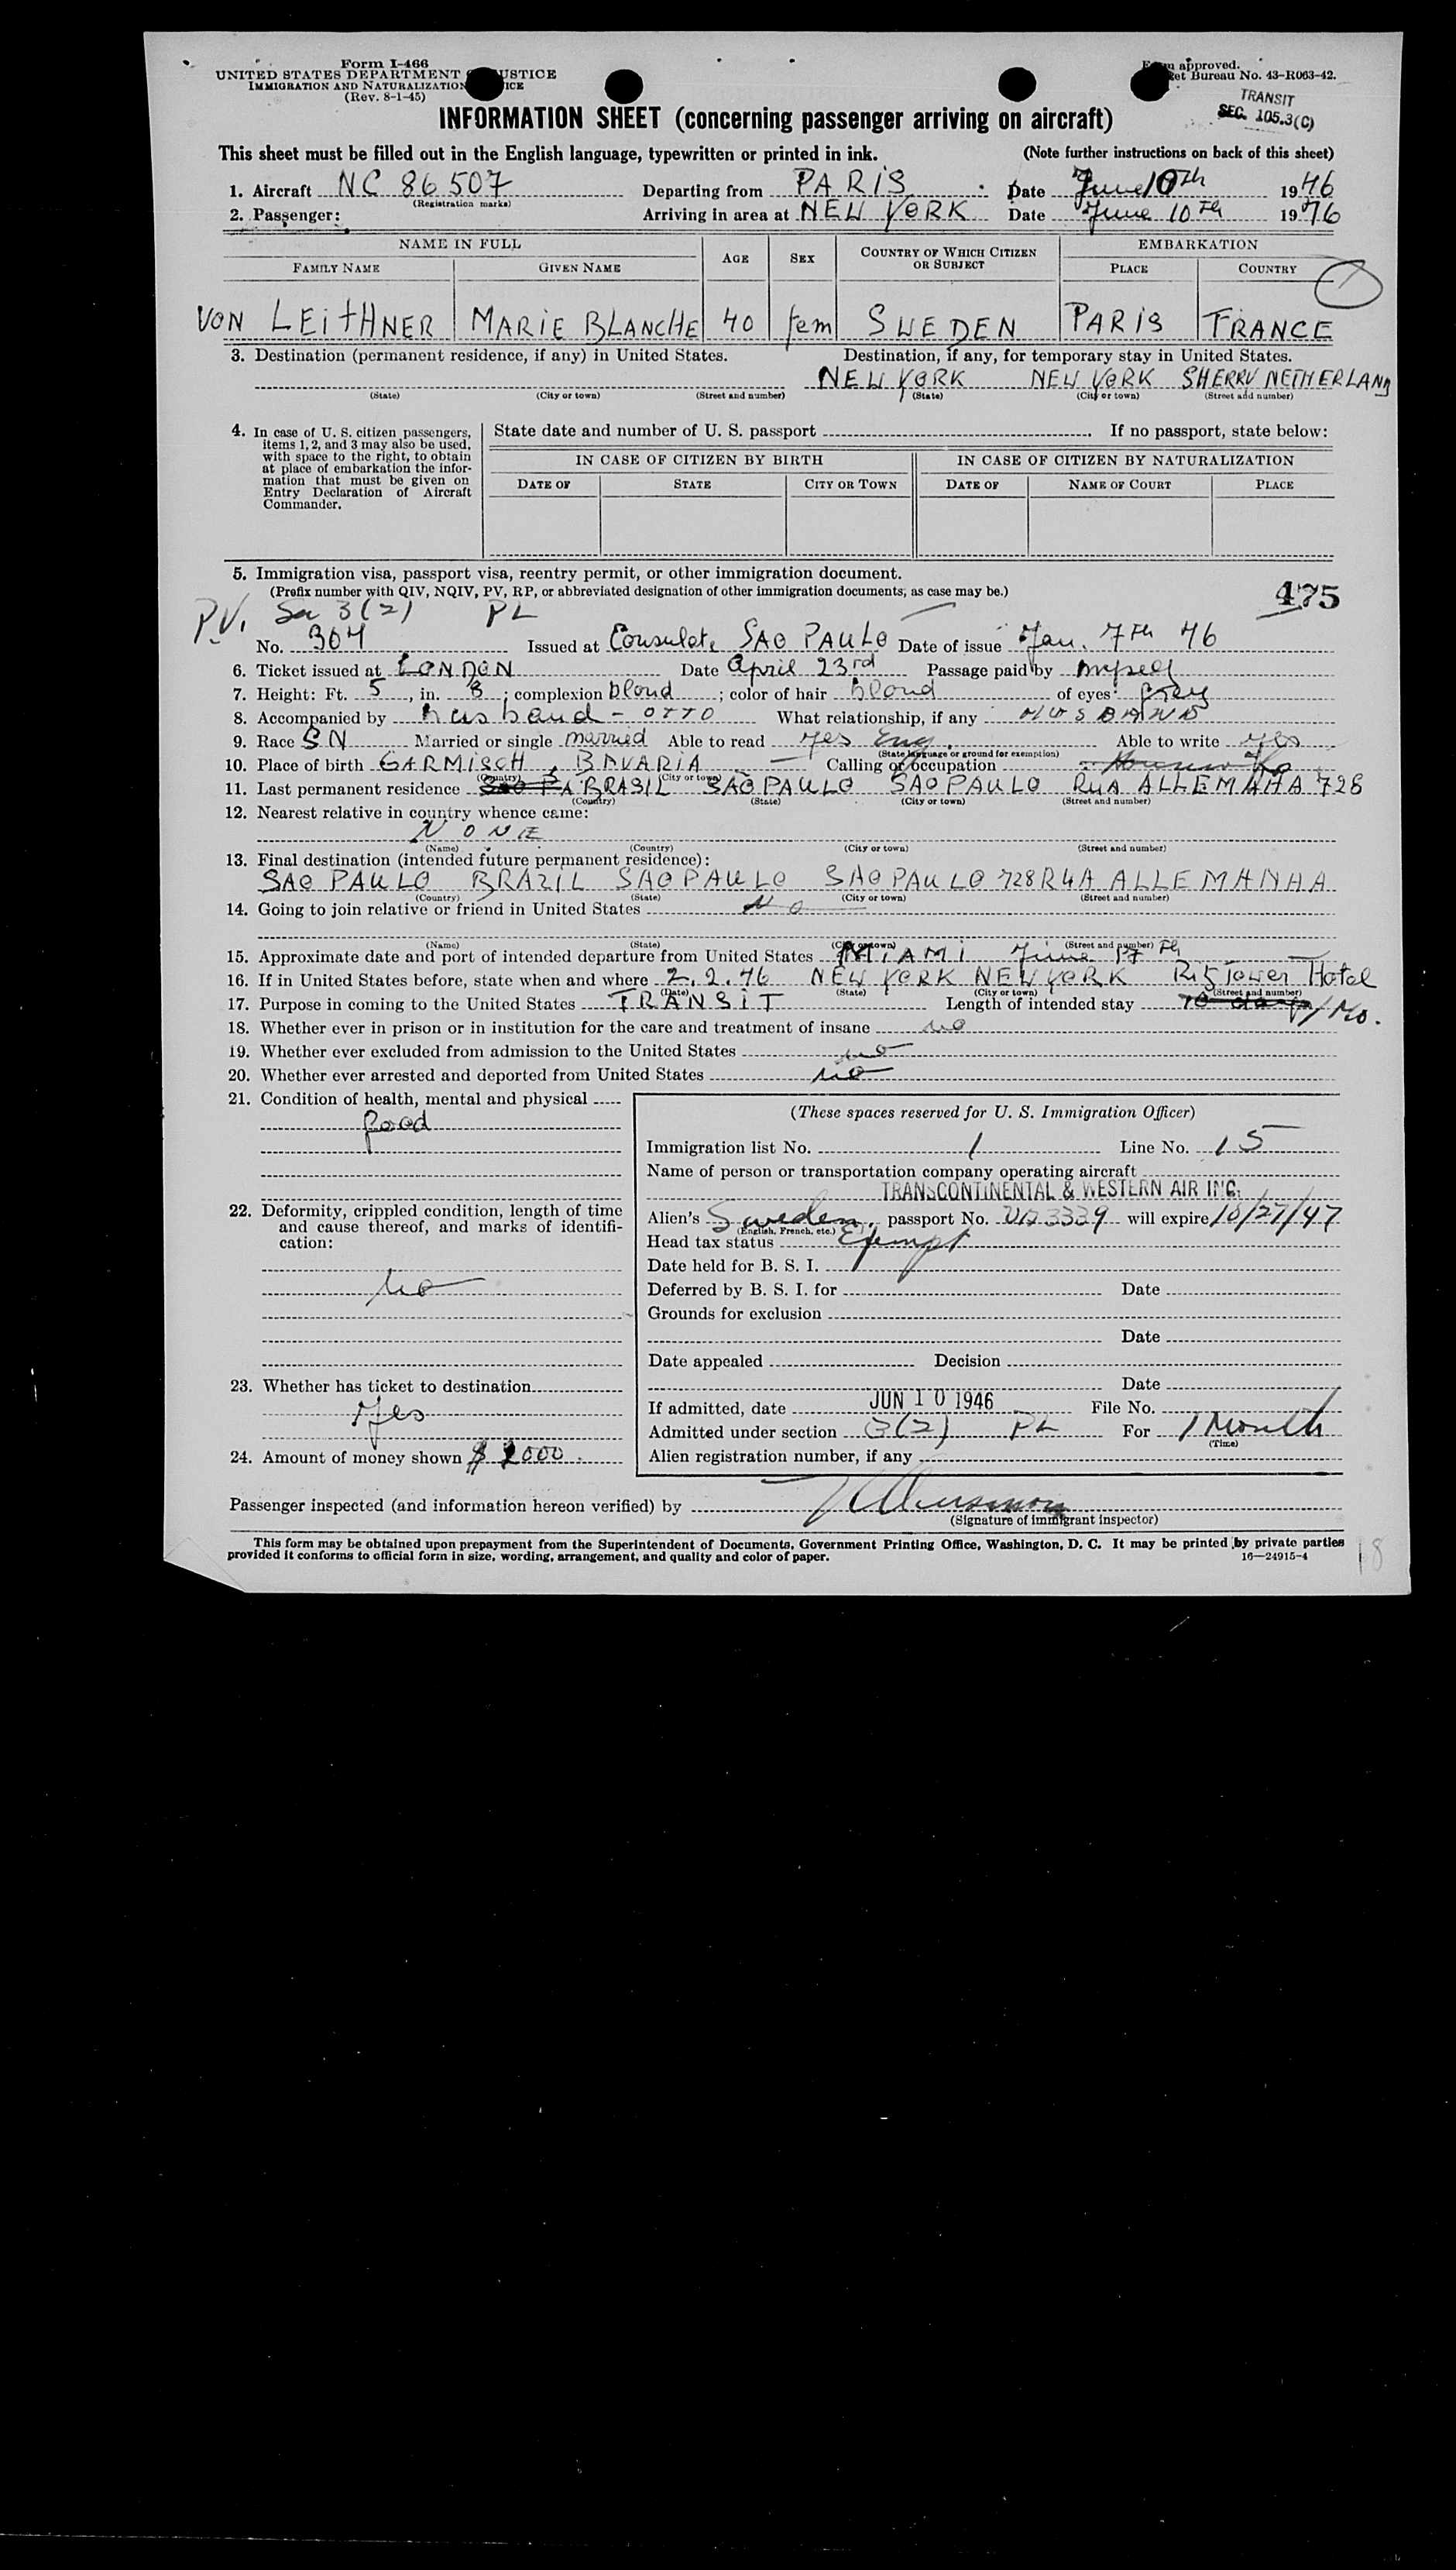 Form I-466
UNITED STATES DEPARTMENT JUSTICE
IMMIGRATION AND NATURALIZATION
(Rev. 8-1-45)
approved.
et Bureau No. 43-R063-42.
TRANSIT
SEC. 105.3(C)
INFORMATION SHEET (concerning passenger arriving on aircraft)
This sheet must be filled out in the English language, typewritten or printed in ink. (Note further instructions on back of this sheet)
1. Aircraft NC 86507 Departing from PARIS Date June 10th 1946
(Registration marks)
2. Passenger: Arriving in area at NEW YORK Date June 10th 1946
NAME IN FULL AGE SEX COUNTRY OF WHICH CITIZEN OR SUBJECT EMBARKATION
FAMILY NAME GIVEN NAME PLACE COUNTRY
VON LEITHNER MARIE BLANCHE 40 fem SWEDEN PARIS FRANCE
3. Destination (permanent residence, if any) in United States. Destination, if any, for temporary stay in United States.
NEW YORK NEW YORK SHERRY NETHERLAND
(State) (City or town) (Street and number) (State) (City or town) (Street and number)
4. In case of U. S. citizen passengers, items 1, 2, and 3 may also be used, with space to the right, to obtain at place of embarkation the information that must be given on Entry Declaration of Aircraft Commander.
State date and number of U. S. passport If no passport, state below:
IN CASE OF CITIZEN BY BIRTH IN CASE OF CITIZEN BY NATURALIZATION
DATE OF STATE CITY OR TOWN DATE OF NAME OF COURT PLACE
5. Immigration visa, passport visa, reentry permit, or other immigration document.
(Prefix number with QIV, NQIV, PV, RP, or abbreviated designation of other immigration documents, as case may be.) 475
P.V. 3(2) PL
No. 304 Issued at Consulate SAO PAULO Date of issue Jan. 7th 46
6. Ticket issued at LONDON Date April 23rd Passage paid by myself
7. Height: Ft. 5, in. 8; complexion blond; color of hair blond of eyes grey
8. Accompanied by husband - OTTO What relationship, if any HUSBAND
9. Race SN Married or single married Able to read yes Eng. Able to write yes
(State language or ground for exemption)
10. Place of birth GARMISCH, BAVARIA Calling or occupation Housewife
(Country) (City or town)
11. Last permanent residence BRASIL SAO PAULO SAO PAULO RUA ALLEMAHA 728
(Country) (State) (City or town) (Street and number)
12. Nearest relative in country whence came:
NONE
(Name) (Country) (City or town) (Street and number)
13. Final destination (intended future permanent residence):
SAO PAULO BRAZIL SAO PAULO SAO PAULO 728 RUA ALLEMANHA
(Country) (State) (City or town) (Street and number)
14. Going to join relative or friend in United States NO
(Name) (State) (City or town) (Street and number)
15. Approximate date and port of intended departure from United States MIAMI June 17th
16. If in United States before, state when and where 2.2.46 NEW YORK NEW YORK Ritz Tower Hotel
(Date) (State) (City or town) (Street and number)
17. Purpose in coming to the United States TRANSIT Length of intended stay 10 days 1 Mo.
18. Whether ever in prison or in institution for the care and treatment of insane no
19. Whether ever excluded from admission to the United States no
20. Whether ever arrested and deported from United States no
21. Condition of health, mental and physical
good
22. Deformity, crippled condition, length of time and cause thereof, and marks of identification:
no
23. Whether has ticket to destination
Yes
24. Amount of money shown $ 1000.
(These spaces reserved for U. S. Immigration Officer)
Immigration list No. 1 Line No. 15
Name of person or transportation company operating aircraft
TRANSCONTINENTAL & WESTERN AIR INC.
Alien's Sweden passport No. 3339 will expire 10/27/47
(English, French, etc.)
Head tax status Exempt
Date held for B. S. I.
Deferred by B. S. I. for Date
Grounds for exclusion
Date
Date appealed Decision
Date
If admitted, date JUN 10 1946 File No.
Admitted under section 3(2) PL For 1 Month
(Time)
Alien registration number, if any
Passenger inspected (and information hereon verified) by
(Signature of immigrant inspector)
This form may be obtained upon prepayment from the Superintendent of Documents, Government Printing Office, Washington, D. C. It may be printed by private parties
provided it conforms to official form in size, wording, arrangement, and quality and color of paper. 16—24915-4
18